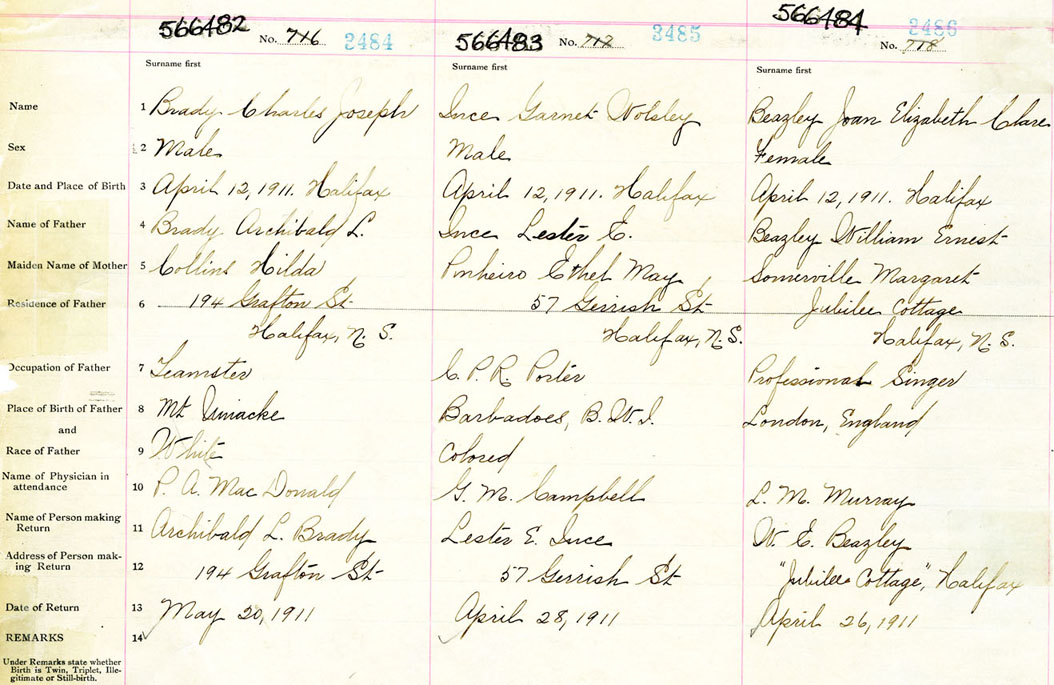 566482 No. 716 2484 566483 No. 717 2485 566484 No. 718 2486
Surname first Surname first Surname first
Name 1 Brady Charles Joseph Ince Garnet Wolsley Beazley Joan Elizabeth Clare
Sex 2 Male Male Female
Date and Place of Birth 3 April 12, 1911. Halifax April 12, 1911. Halifax April 12, 1911. Halifax
Name of Father 4 Brady Archibald L. Ince Lester E. Beazley William Ernest
Maiden Name of Mother 5 Collins Hilda Pinheiro Ethel May Somerville Margaret
Residence of Father 6 194 Grafton St 57 Gerrish St Jubilee Cottage
Halifax, N. S. Halifax, N. S. Halifax, N. S.
Occupation of Father 7 Teamster C. P. R. Porter Professional Singer
Place of Birth of Father 8 Mt Uniacke Barbadoes, B. W. I. London, England
and
Race of Father 9 White Colored
Name of Physician in
attendance 10 P. A. Mac Donald G. M. Campbell L. M. Murray
Name of Person making
Return 11 Archibald L. Brady Lester E. Ince W. E. Beazley
Address of Person mak-
ing Return 12 194 Grafton St 57 Gerrish St "Jubilee Cottage", Halifax
Date of Return 13 May 20, 1911 April 28, 1911 April 26, 1911
REMARKS 14
Under Remarks state whether
Birth is Twin, Triplet, Ille-
gitimate or Still-birth.